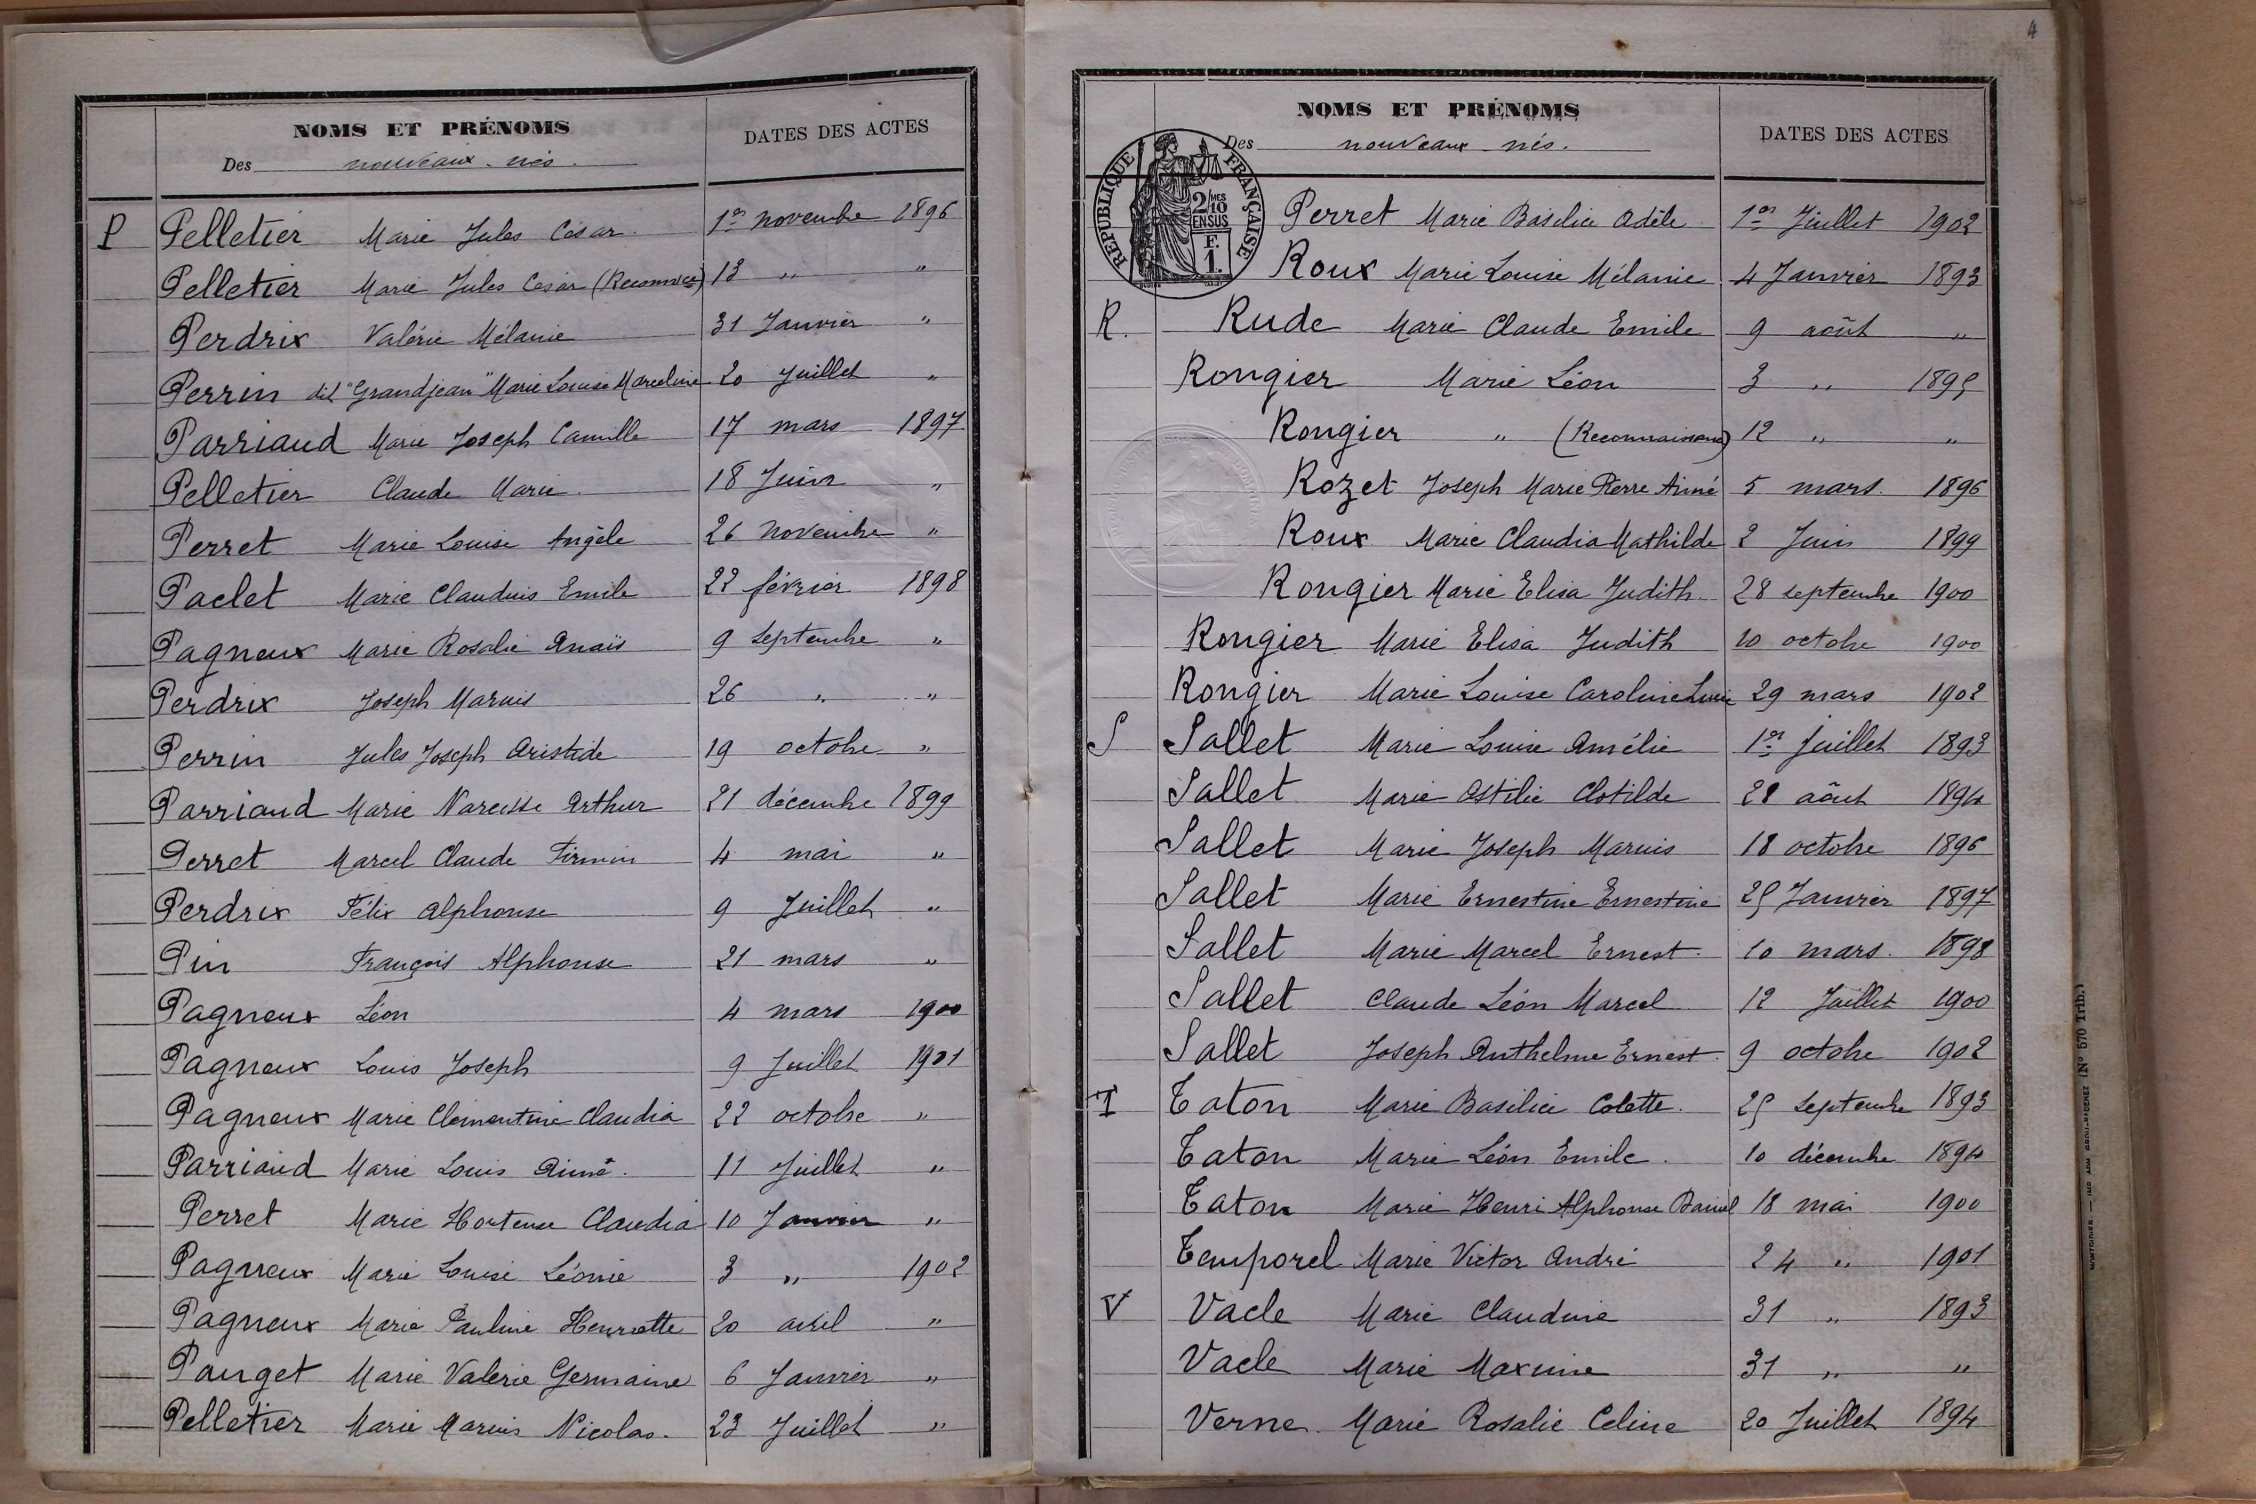 NOMS ET PRÉNOMS
DATES DES ACTES
Des nouveaux-nés.
P Pelletier Marie Jules César 1er novembre 1896
Pelletier Marie Jules César (Reconnce) 13 " "
Perdrix Valérie Mélanie 31 Janvier "
Perrin dit "Grandjean" Marie Louise Marceline 20 Juillet "
Parriaud Marie Joseph Camille 17 mars 1897
Pelletier Claude Marie 18 Juin "
Perret Marie Louise Angèle 26 novembre "
Paclet Marie Claudius Emile 22 février 1898
Pagneux Marie Rosalie Anaïs 9 septembre "
Perdrix Joseph Marius 26 " "
Perrin Jules Joseph Aristide 19 octobre "
Parriaud Marie Narcisse Arthur 21 décembre 1899
Perret Marcel Claude Firmin 4 mai "
Perdrix Félix Alphonse 9 Juillet "
Pin François Alphonse 21 mars "
Pagneux Léon 4 mars 1900
Pagneux Louis Joseph 9 Juillet 1901
Pagneux Marie Clementine Claudia 22 octobre "
Parriaud Marie Louis Aimé. 11 Juillet "
Perret Marie Hortense Claudia 10 Janvier "
Pagneux Marie Louise Léonie 3 " 1902
Pagneux Marie Pauline Henriette 20 avril "
Pauget Marie Valerie Germaine 6 Janvier "
Pelletier Marie Marius Nicolas. 23 Juillet "
4
NOMS ET PRÉNOMS
DATES DES ACTES
Des nouveaux-nés.
RÉPUBLIQUE FRANÇAISE
2/10MES
EN SUS
F.
1.
Perret Marie Basilice Adèle 1er Juillet 1902
Roux Marie Louise Mélanie 4 Janvier 1893
R. Rude Marie Claude Emile 9 août "
Rongier Marie Léon 3 " 1895
Rongier " (Reconnaissance) 12 " "
Rozet Joseph Marie Pierre Aimé 5 mars. 1896
Roux Marie Claudia Mathilde 2 Juin 1899
Rongier Marie Elisa Judith 28 septembre 1900
Rongier Marie Elisa Judith 10 octobre 1900
Rongier Marie Louise Caroline 29 mars 1902
S Sallet Marie Louise Amélie 1er Juillet 1893
Sallet Marie Ostilie Clotilde 28 août 1894
Sallet Marie Joseph Marius 18 octobre 1896
Sallet Marie Ernestine Ernestine 25 Janvier 1897
Sallet Marie Marcel Ernest. 10 mars. 1898
Sallet Claude Léon Marcel 12 Juillet 1900
Sallet Joseph Anthelme Ernest. 9 octobre 1902
T Taton Marie Basilice Colette. 25 septembre 1893
Taton Marie Léon Emile. 10 décembre 1894
Taton Marie Henri Alphonse Daniel 18 mai 1900
Temporel Marie Victor André 24 " 1901
V Vacle Marie Claudine 31 " 1893
Vacle Marie Maxime 31 " "
Verne. Marie Rosalie Celine 20 Juillet 1894
(No 570 Trib.)